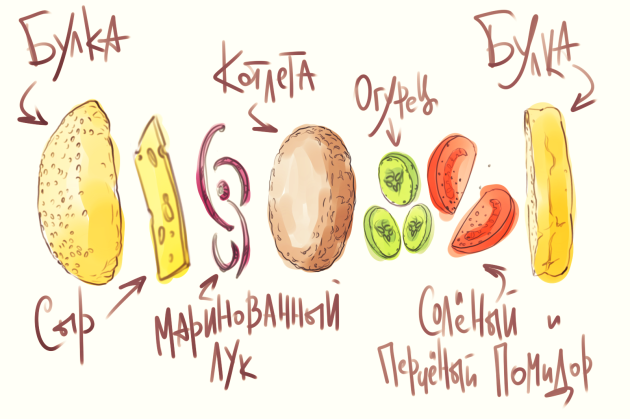 Булка
Котлета
Огурец
Булка
Сыр
Маринованный
лук
Солёный и
Перчёный Помидор